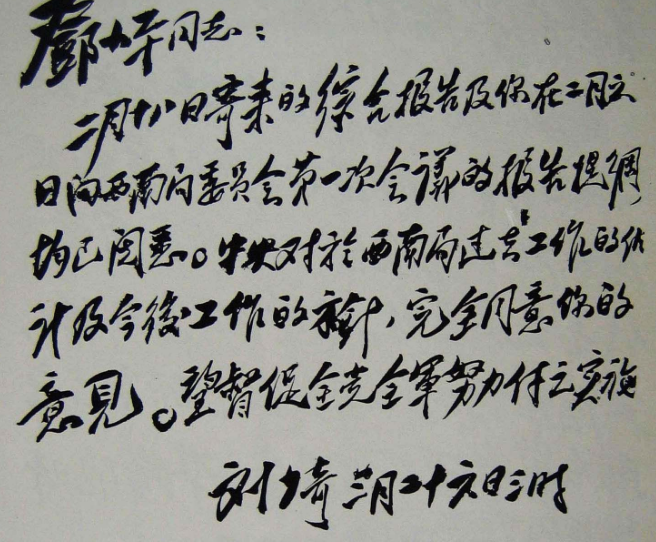 鄧小平同志：
二月十八日寄来的綜合报告及你在二月六
日向西南局委員会第一次会議的报告提綱
均已阅悉。中央对於西南局过去工作的估
计及今後工作的方針，完全同意你的
意見。望督促全党全軍努力付之实施
刘少奇 二月二十六日三时